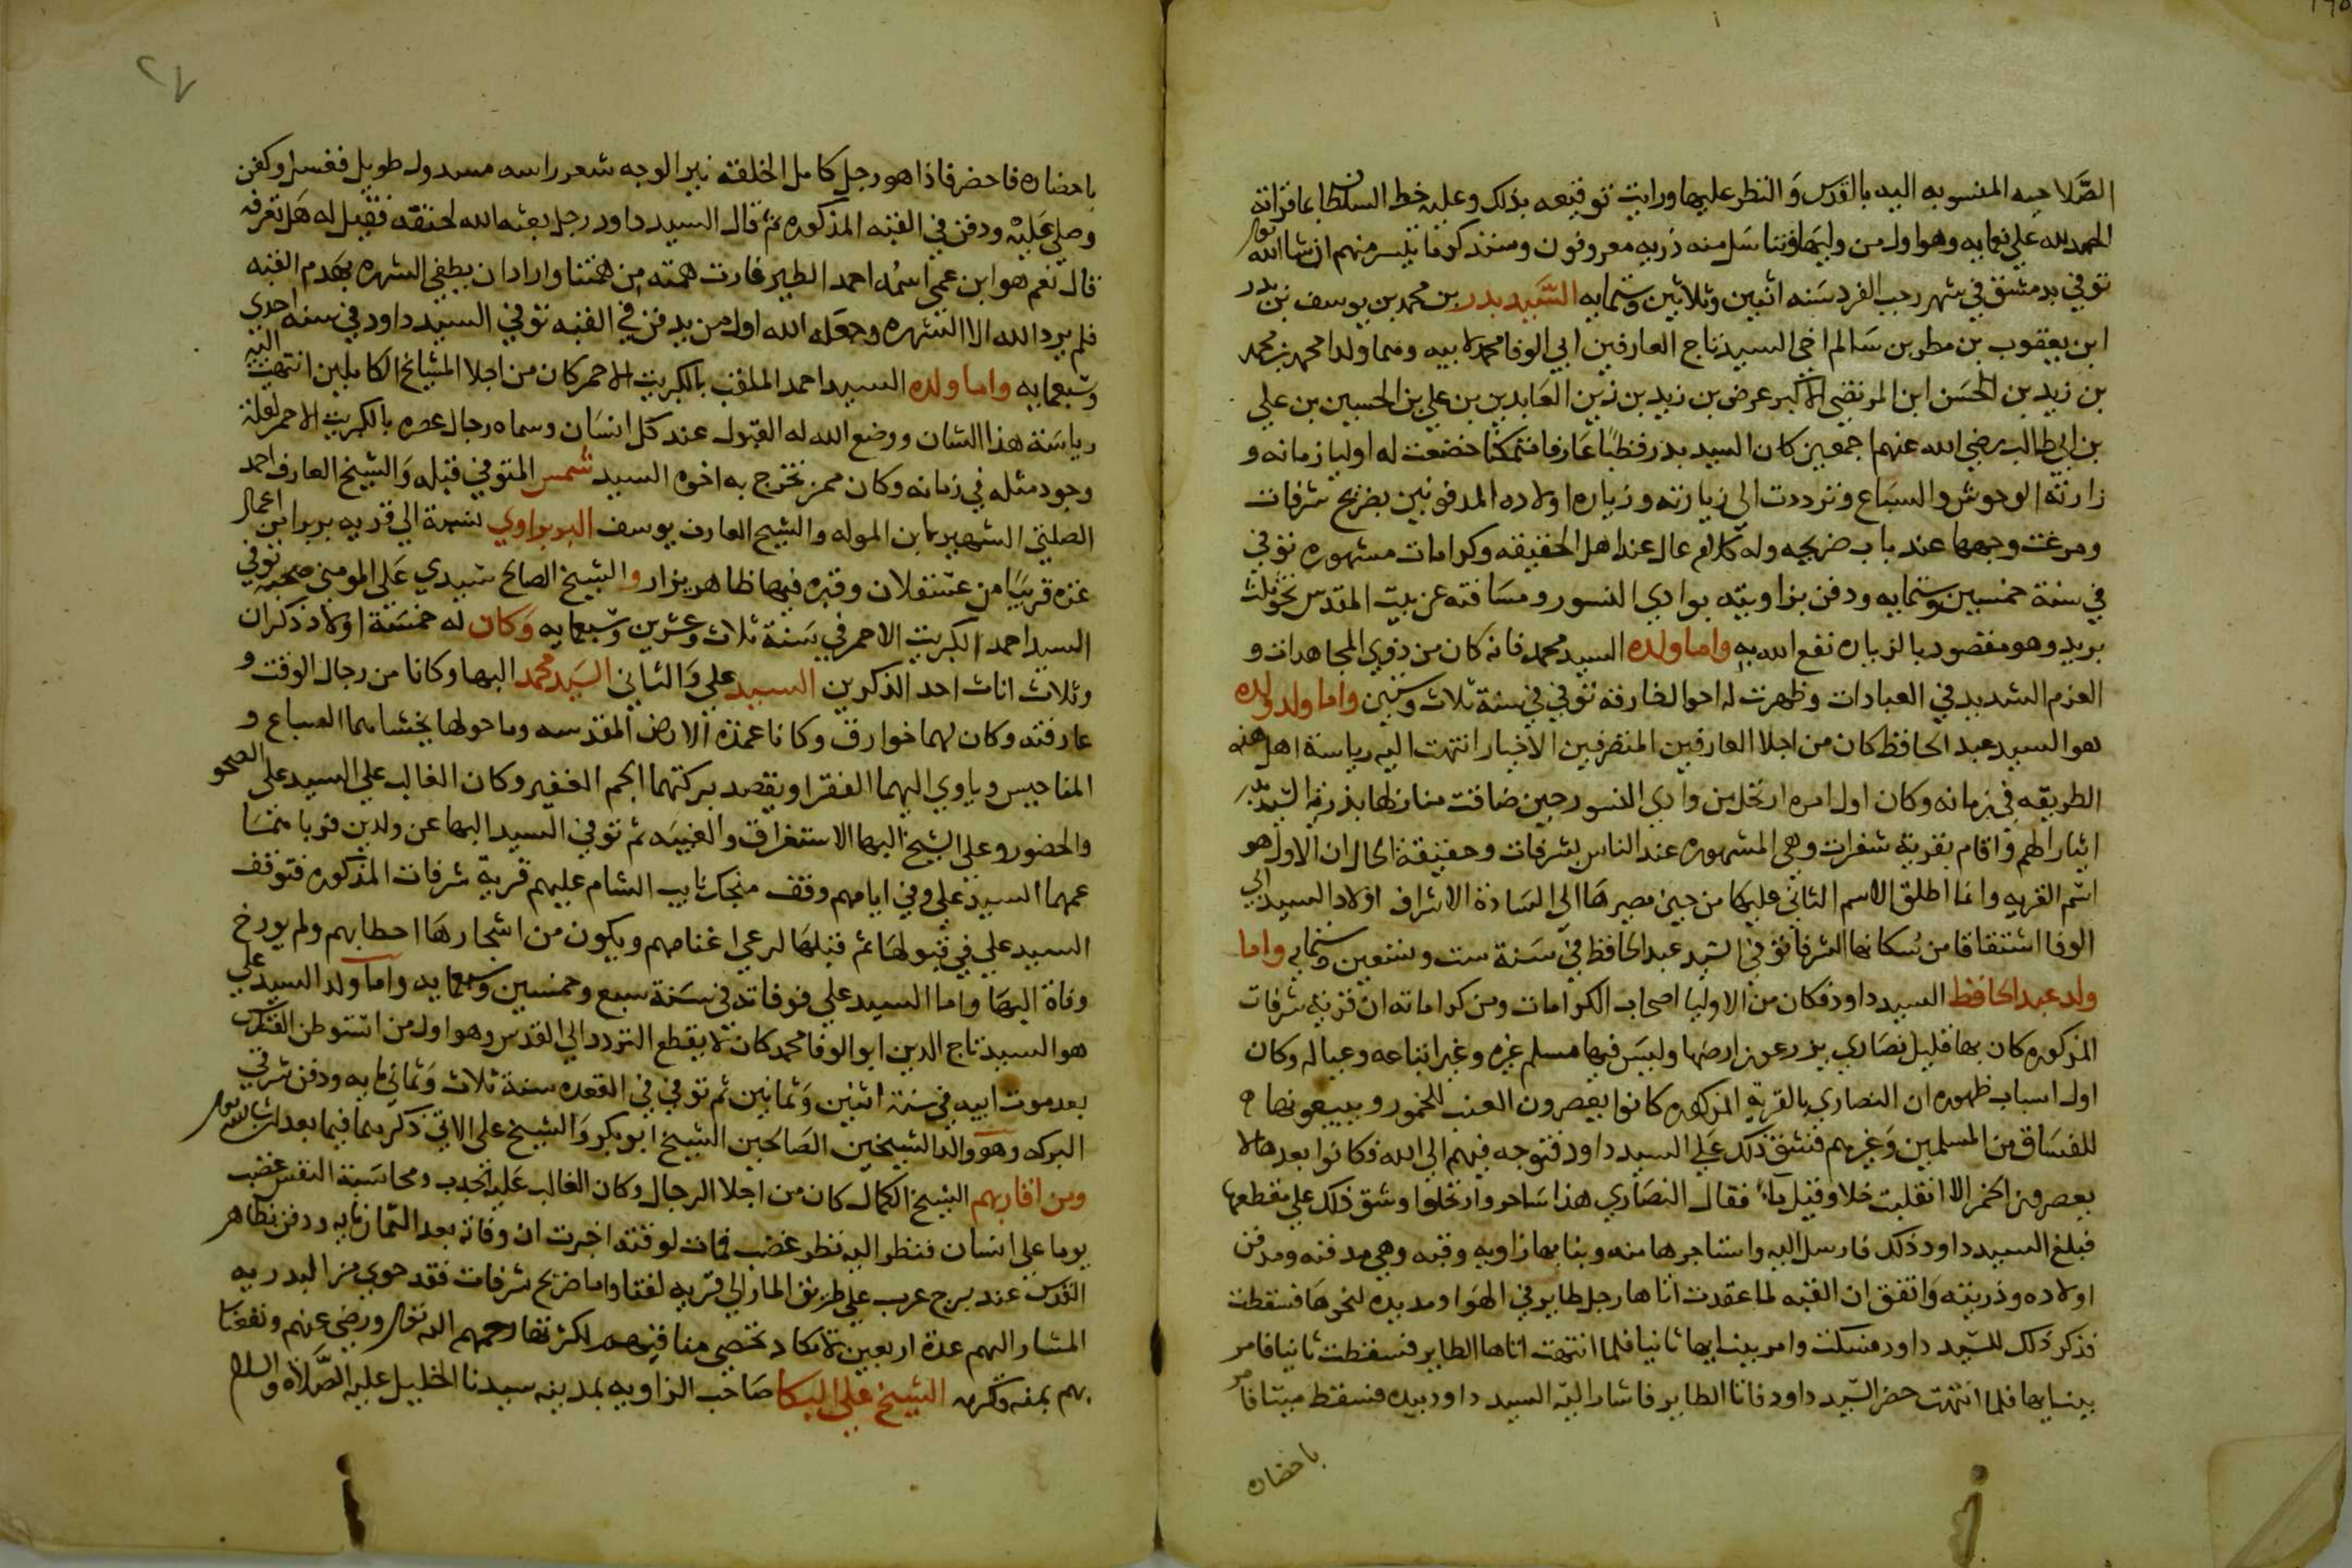 الصَّلاحيه المنسوبه اليه بالقدس وَالنظر عليها ورايت توقيعه بذلك وعليه خط السلطان بما قراته
الحمد لله علي نعمايه وهو اول من وليها وتناسَل منه ذريه معروفون وسنذكر ما تيسر منهم ان شا الله تعالى
توفي بدمشق في شهر رجب الفرد سَنه اثنين وثلاثين وستمايه السَّيد بدر بن محمد بن يوسف بن بدر
ابن يعقوب بن مطر بن سَالم اخي السيد تاج العارفين ابي الوفا محمد لابيه وهما ولدا محمد بن محمد
بن زيد بن الحسَن ابن المرتضي الاكبر عرض بن زيد بن زين العَابدين بن علي بن الحسين بن علي
بن ابي طالب رضي الله عنهم اجمعين كان السيد بدر قطبًا عَارفا متمكنا خضعت له اوليا زمانه و
زارته الوحوش والسبَاع وترددت الي زيارته وزياره اولاده المدفونين بضريح شرفات
ومرغت وجهها عند باب ضريحه وله كلام عال عند اهل الحقيقه وكرامات مشهوره توفي
في سنة خمسين وستمايه ودفن بزاويته بوادي النسور ومسَافته عن بيت المقدس نحو ثلث
بريد وهو مقصود بالزياره نفع الله به واما ولده السيد محمد فانه كان من ذوي المجاهدات و
العزم الشديد في العبادات وظهرت له احوال خارقه توفي في سنة ثلاث وستين واما ولد ولده
هو السيد عبد الحافظ كان من اجلا العارفين المتصرفين الاخيار انتهت اليه رياسة اهل هذه
الطريقه في زمانه وكان اول امره ارتحل من وادي النسور حين ضاقت منازلها بذرية السيد بدر
ايثارا لهم واقام بقرية شفرات وهي المشهوره عند الناس بشرفات وحقيقة الحال ان الاول هو
اسم القريه وانما اطلق الاسم الثاني عليها من حين مصيرهَا الي السَادة الاشراف اولاد السيد ابي
الوفا اشتقاقا من سُكانها الشرفا توفي السيد عبد الحافظ في سَنة ست وتسعين وستمايه واما
ولد عبد الحافظ السيد داود فكان من الاوليا اصحاب الكرامات ومن كراماته ان قرية شرفات
المذكوره كان بها قليل نصَاري يزرعون ارضها وليسَ فيها مسلم غيره وغير اتباعه وعياله وكان
اول اسباب ظهوره ان النصاري بالقرية المذكوره كانوا يعصرون العنب للخمور ويبيعونها
للفسَاق من المسلمين وَغيرهم فشق ذلك عَلي السيد داود فتوجه فيهم الي الله فكانوا بعدها لا
يعصرون الخمر الا انقلبت خلا وقيل ماءً فقال النصَاري هذا سَاحر وارتحلوا وشق ذلك علي مقطعها
فبلغ السيد داود ذلك فارسل اليه واستاجرها منه وبنا بها زاويه وقبه وهي مدفنه ومدفن
اولاده وذريته وَاتفق ان القبه لما عقدت اتاها رجل طاير في الهَوا ومد يده لنحوهَا فسقطت
فذكر ذلك للسَّيد داود فسكت وامر ببنايها ثانيا فلما انتهت اتاها الطاير فسقطت ثانيا فامر
ببنايها فلما انتهت حضر السَّيد داود فاتا الطاير فاشار اليه السيد داود بيده فسقط ميتا فامر
باحضاره
باحضاره فاحضر فاذا هو رجل كامل الخلقة نير الوجه شعر راسه مسدول طويل فغسل وكفن
وصلي عَليه ودفن في القبه المذكوره ثم قال السيد داود رجل بعثه الله لحتفه فقيل له هَل تعرفه
قال نعم هو ابن عمي اسمُه احمد الطير غارت همته من همتنا واراد ان يطفي الشهره بهدم القبه
فلم يرد الله الا الشهره وجعله الله اول من يدفن في القبه توفي السيد داود في سنه احدي
وسَبعمايه واما ولده السيد احمد الملقب بالكبريت الاحمر كان من اجلا المشايخ الكاملين انتهت اليه
رياسَة هذا الشان ووضع الله له القبول عند كل انسَان وسماه رجال عصره بالكبريت الاحمر لقلة
وجود مثله في زمانه وكان ممن تخرج به اخوه السيد شمس المتوفي قبله وَالشيخ العارف احمد
الصلتي الشهير بابن الموله والشيخ العارف يوسف البربراوي نسبة الي قريه بربرا من اعمال
غزه قريبًا من عسقلان وقبره فيها ظاهر يزار والشيخ الصالح سَيدي عَلي المومني صحبه توفي
السيد احمد الكبريت الاحمر في سَنة ثلاث وعشرين وسَبعمايه وَكان له خمسَة اولاد ذكران
وثلاث اناث احد الذكرين السيد علي وَالثاني السَيد محمد البها وكانا من رجال الوقت و
عارفته وكان لهما خوارق وكانا عمدة الارض المقدسه وما حولها يخشاهما السباع و
المناحيس وياوي اليهما الفقرا ويقصد بركتهما الجم الغفير وكان الغالب علي السيد علي الصحو
والحضور وعلي الشيخ البها الاستغراق والغيبَه ثم توفي السيد البها عن ولدين
عمهما السيد علي وفي ايامهم وقف منجك نايب الشام عليهم قرية شرفات المذكوره فتوقف
السيد علي في قبولهَا ثم قبلهَا لرعي اغنامهم ويكون من اشجارهَا احطابهم ولم يورخ
وفاة البهَا واما السيد علي فوفاته في سَنة سبع وخمسين وسبعمايه واما ولد السيد علي
هو السيد تاج الدين ابو الوفا محمد كان لا يقطع التردد الي القدس وهو اول من استوطن القدس
بعد موت ابيه في سنة اثنين وَثمانين ثم توفي في القعده سنة ثلاث وَثماني مايه ودفن شرقي
البركه وهو والد الشيخين الصَالحين الشيخ ابو بكر وَالشيخ علي الاتي ذكرهما فيما بعد ان شا الله تعالى
ومن اقاربهم الشيخ الكمال كان من اجلا الرجال وكان الغالب عَليه الجذب ومحاسَبة النفس غضب
يوما علي انسان فنظر اليه نظر غضب فمات لوقته اخبرت ان وفاته بعد الثمان مايه ودفن بظاهر
القدس عند برج عرب علي طريق المار الي قريه لفتا واما ضريح شرفات فقد حوي من البدريه
المشار اليهم عدة اربعين لا تكاد تحصي مناقبهم لكثرتها رحمهم الله تعالى ورضي عنهم ونفعنا
بهم بمنه وكرمه الشيخ علي البكا صَاحب الزاويه بمدينه سيدنا الخليل عليه الصَّلاة والسلام